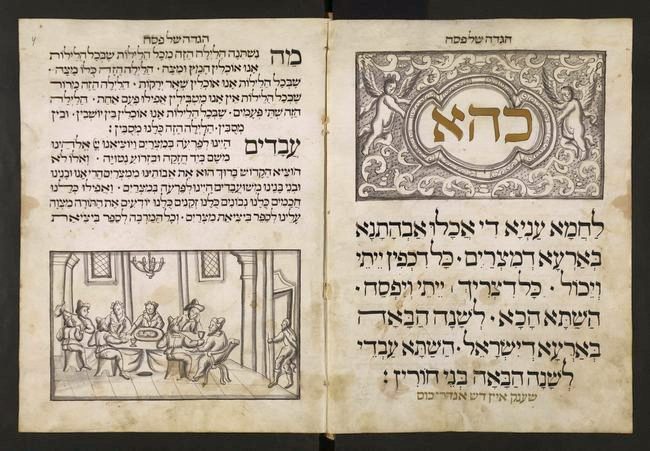 הגדה של פסח
כהא
לחמא עניא די אכלו אבהתנא
בארעא דמצרים · כל דכפין ייתי
וייכול · כל דצריך ייתי ויפסח ·
השתא הכא · לשנה הבאה
בארעא דישראל · השתא עבדי
לשנה הבאה בני חורין :
שענק איין דש אנדר כוס
הגדה של פסח
מה נשתנה הלילה הזה מכל הלילות שבכל הלילות
אנו אוכלין חמץ ומצה · הלילה הזה כלו מצה ·
שבכל הלילות אנו אוכלין שאר ירקות · הלילה הזה מרור
שבכל הלילות אין אנו מטבילין אפילו פעם אחת · הלילה
הזה שתי פעמים · שבכל הלילות אנו אוכלין בין יושבין · ובין
מסבין · הלילה הזה כלנו מסבין :
עבדים היינו לפרעה במצרים ויוציאנו יי אלהינו
משם ביד חזקה ובזרוע נטויה · ואלו לא
הוציא הקדוש ברוך הוא את אבותינו ממצרים הרי אנו ובנינו
ובני בנינו משועבדים היינו לפרעה במצרים · ואפילו כלנו
חכמים כלנו נבונים כלנו זקנים כלנו יודעים את התורה מצוה
עלינו לספר ביציאת מצרים · וכל המרבה לספר ביציאת